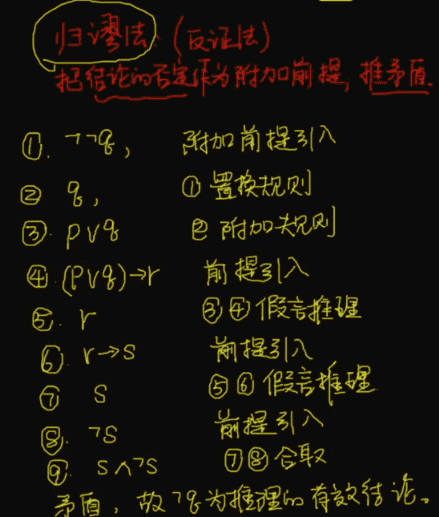 归谬法:(反证法)
把结论的否定作为附加前提,推矛盾.
①. ¬¬q, 附加前提引入
② q, ①置换规则
③. p∨q ②附加规则
④. (p∨q)→r 前提引入
⑤. r ③④假言推理
⑥. r→s 前提引入
⑦ s ⑤⑥假言推理
⑧. ¬s 前提引入
⑨. s∧¬s ⑦⑧合取
矛盾,故¬q为推理的有效结论。